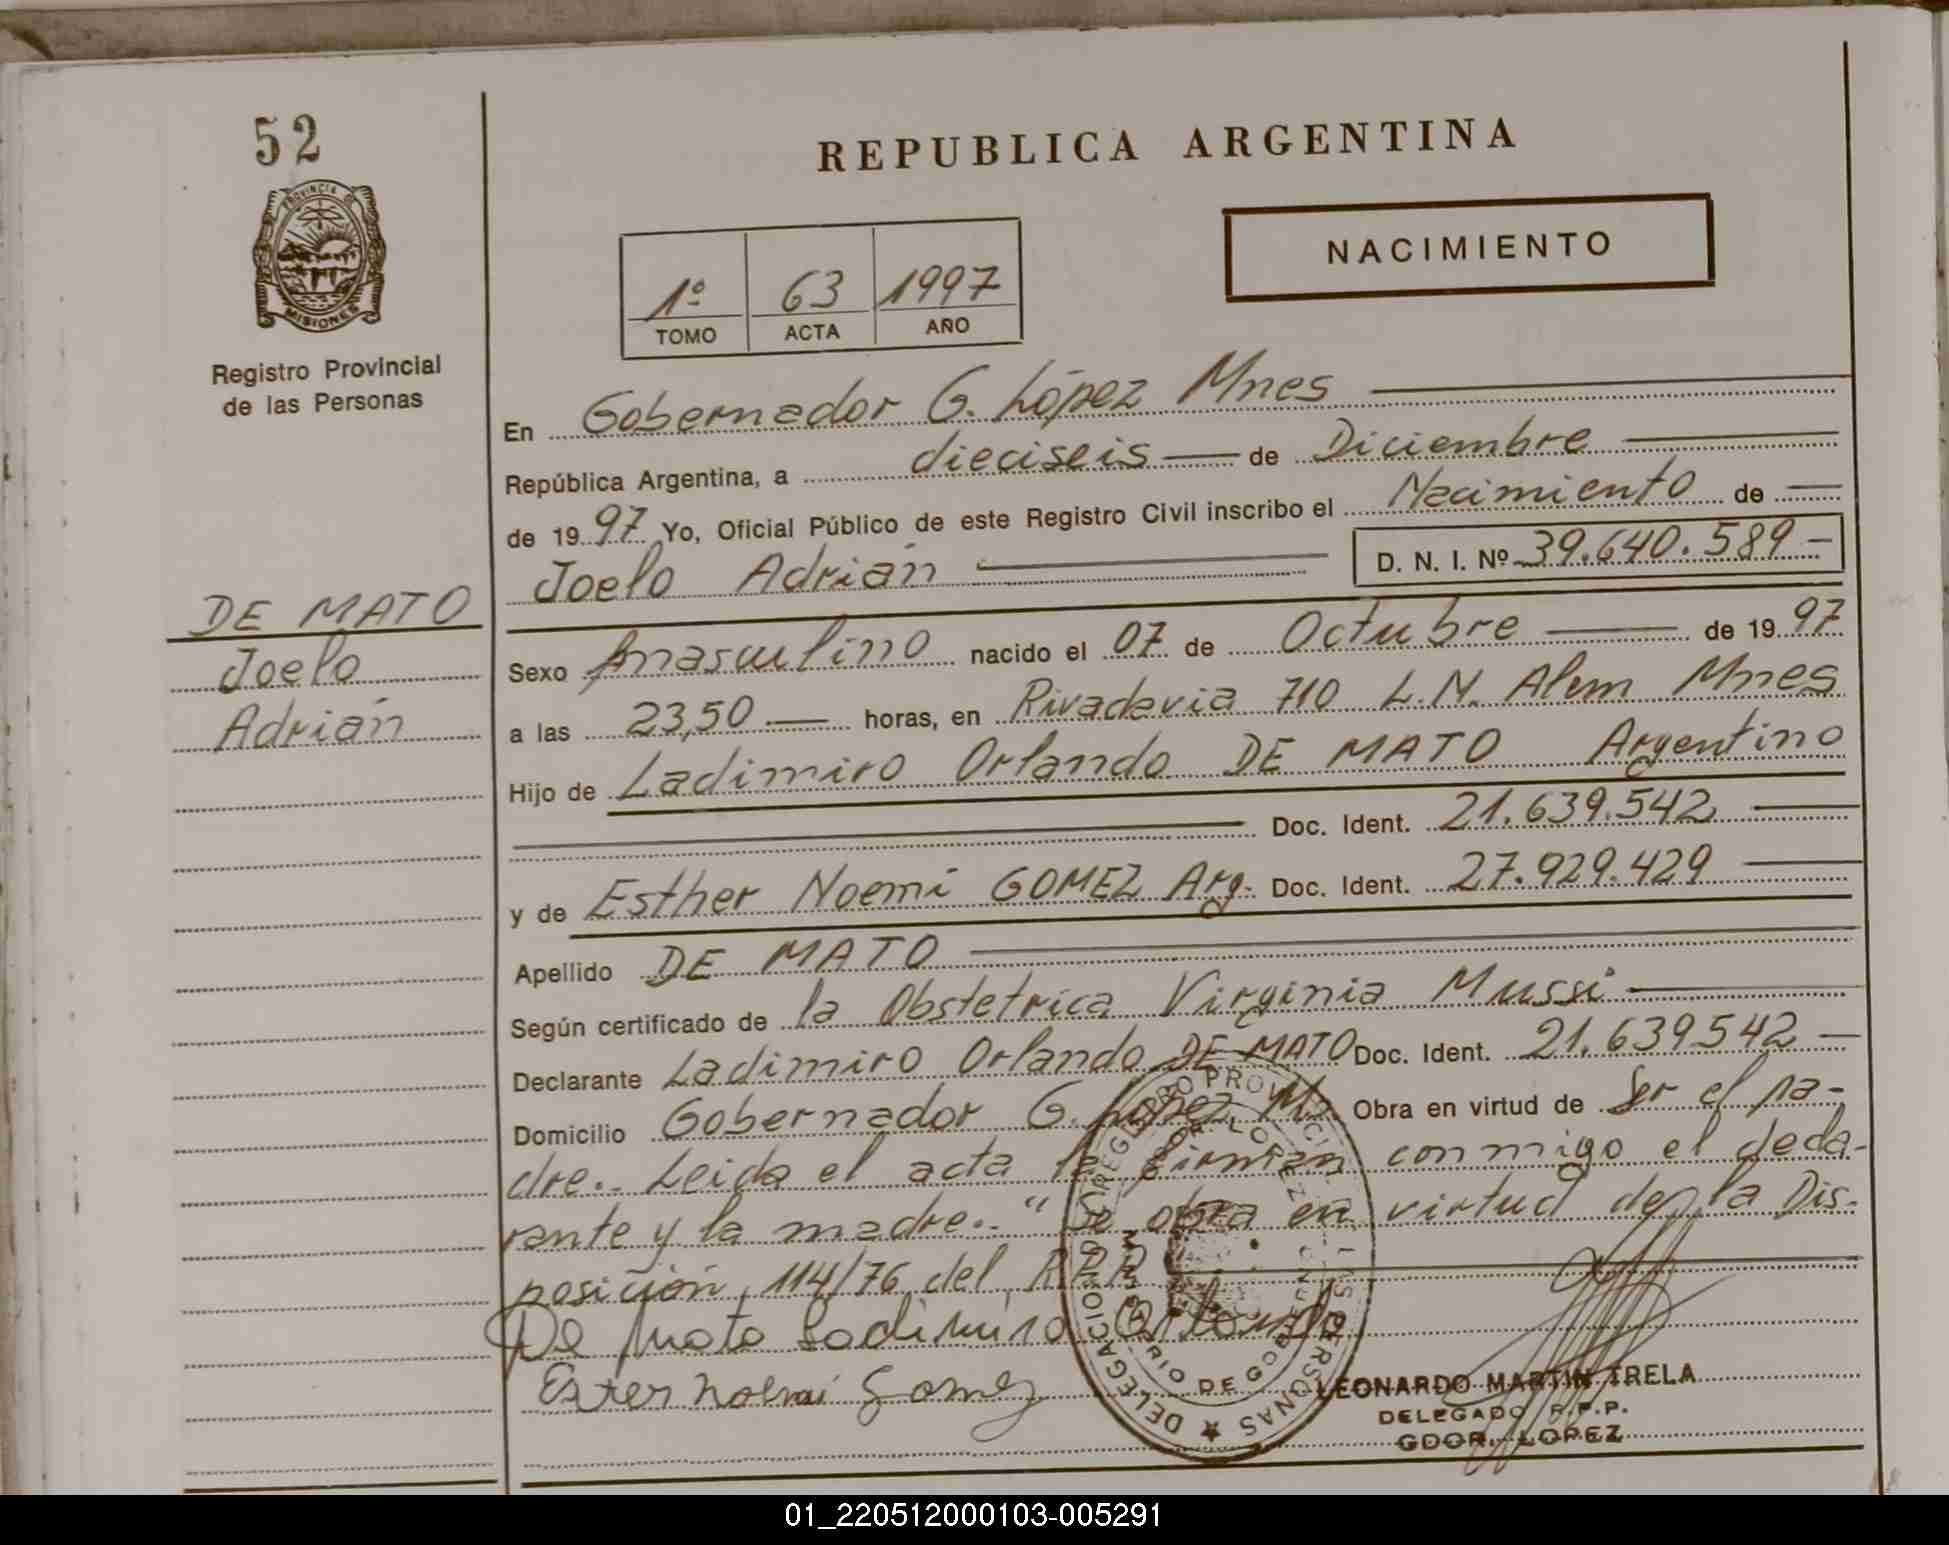 52
PROVINCIA DE
MISIONES
Registro Provincial
de las Personas
DE MATO
Joelo
Adrián
REPUBLICA ARGENTINA
NACIMIENTO
1º 63 1997
TOMO ACTA AÑO
En Gobernador G. López Mnes
República Argentina, a dieciseis de Diciembre
de 1997 Yo, Oficial Público de este Registro Civil inscribo el Nacimiento de
Joelo Adrián D. N. I. Nº 39.640.589
Sexo masculino nacido el 07 de Octubre de 1997
a las 23,50 horas, en Rivadavia 710 L.N. Alem Mnes
Hijo de Ladimiro Orlando DE MATO Argentino
Doc. Ident. 21.639.542
y de Esther Noemí GOMEZ Arg. Doc. Ident. 27.929.429
Apellido DE MATO
Según certificado de la Obstetrica Virginia Mussi
Declarante Ladimiro Orlando DE MATO Doc. Ident. 21.639542
Domicilio Gobernador G. López Obra en virtud de ser el pa-
dre.. Leida el acta la firman conmigo el decla-
rante y la madre.. "Se obra en virtud de la Dis-
posición 114/76 del R.P.P.
De Mato Ladimiro Orlando
Ester noemi Gomez
LEONARDO MARTIN TRELA
DELEGADO R.P.P.
GDOR. LOPEZ
01_220512000103-005291